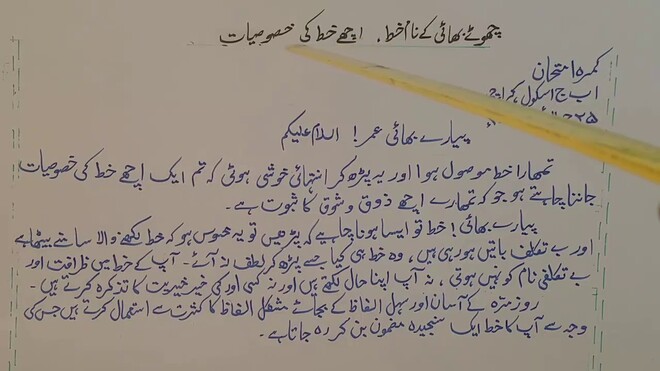 چھوٹے بھائی کے نام خط ۔ اچھے خط کی خصوصیات
کمرہ امتحان
اب ج اسکول کراچی
۲۵
پیارے بھائی عمر! السلام علیکم
تمھارا خط موصول ہوا اور یہ پڑھ کر انتہائی خوشی ہوئی کہ تم ایک اچھے خط کی خصوصیات
جاننا چاہتے ہو جو کہ تمھارے اچھے ذوق و شوق کا ثبوت ہے۔
پیارے بھائی! خط تو ایسا ہونا چاہیے کہ پڑھیں تو یہ محسوس ہو کہ خط لکھنے والا سامنے بیٹھا ہے
اور بے تکلف باتیں ہو رہی ہیں، وہ خط ہی کیا جسے پڑھ کر لطف نہ آئے۔ آپ کے خط میں ظرافت اور
بے تکلفی نام کو نہیں ہوتی، نہ آپ اپنا حال لکھتے ہیں اور نہ کسی اور کی خیر خیریت کا تذکرہ کرتے ہیں۔
روزمرّہ کے آسان اور سہل الفاظ کے بجائے مشکل الفاظ کا کثرت سے استعمال کرتے ہیں جس کی
وجہ سے آپ کا خط ایک سنجیدہ مضمون بن کر رہ جاتا ہے۔